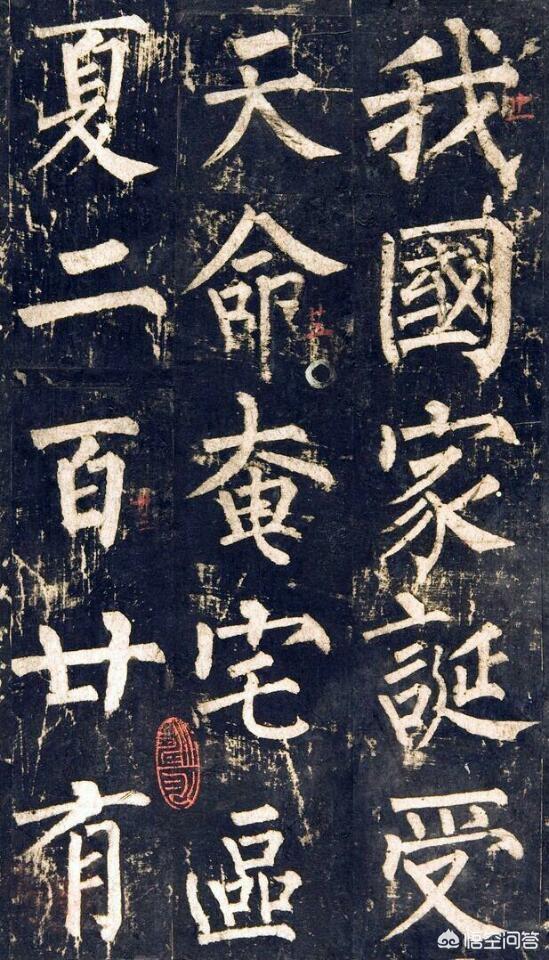 我國家誕受
天命奄宅區
夏二百廿有
悟空问答